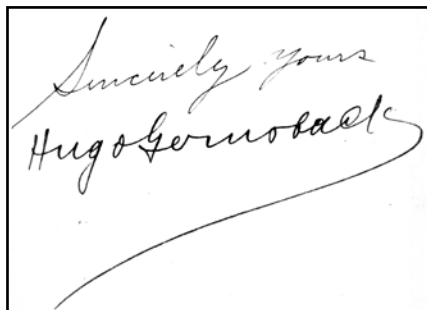 Sincerely yours
Hugo Gernsback